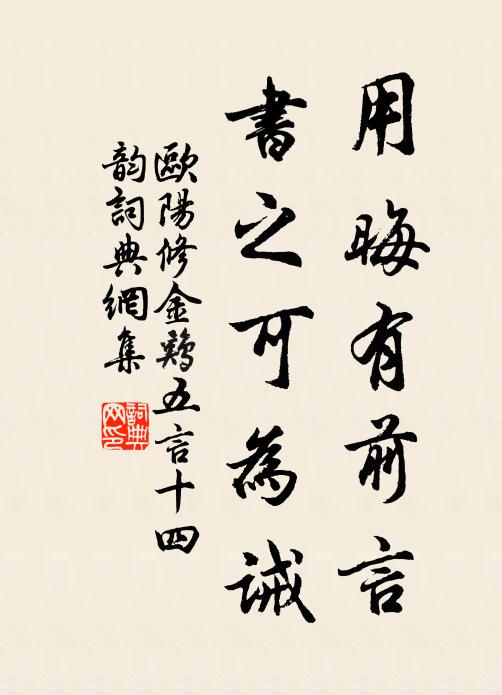 用晦有前言
書之可為誡
歐陽修金鷄五言十四
韵詞典網集
詞典网印